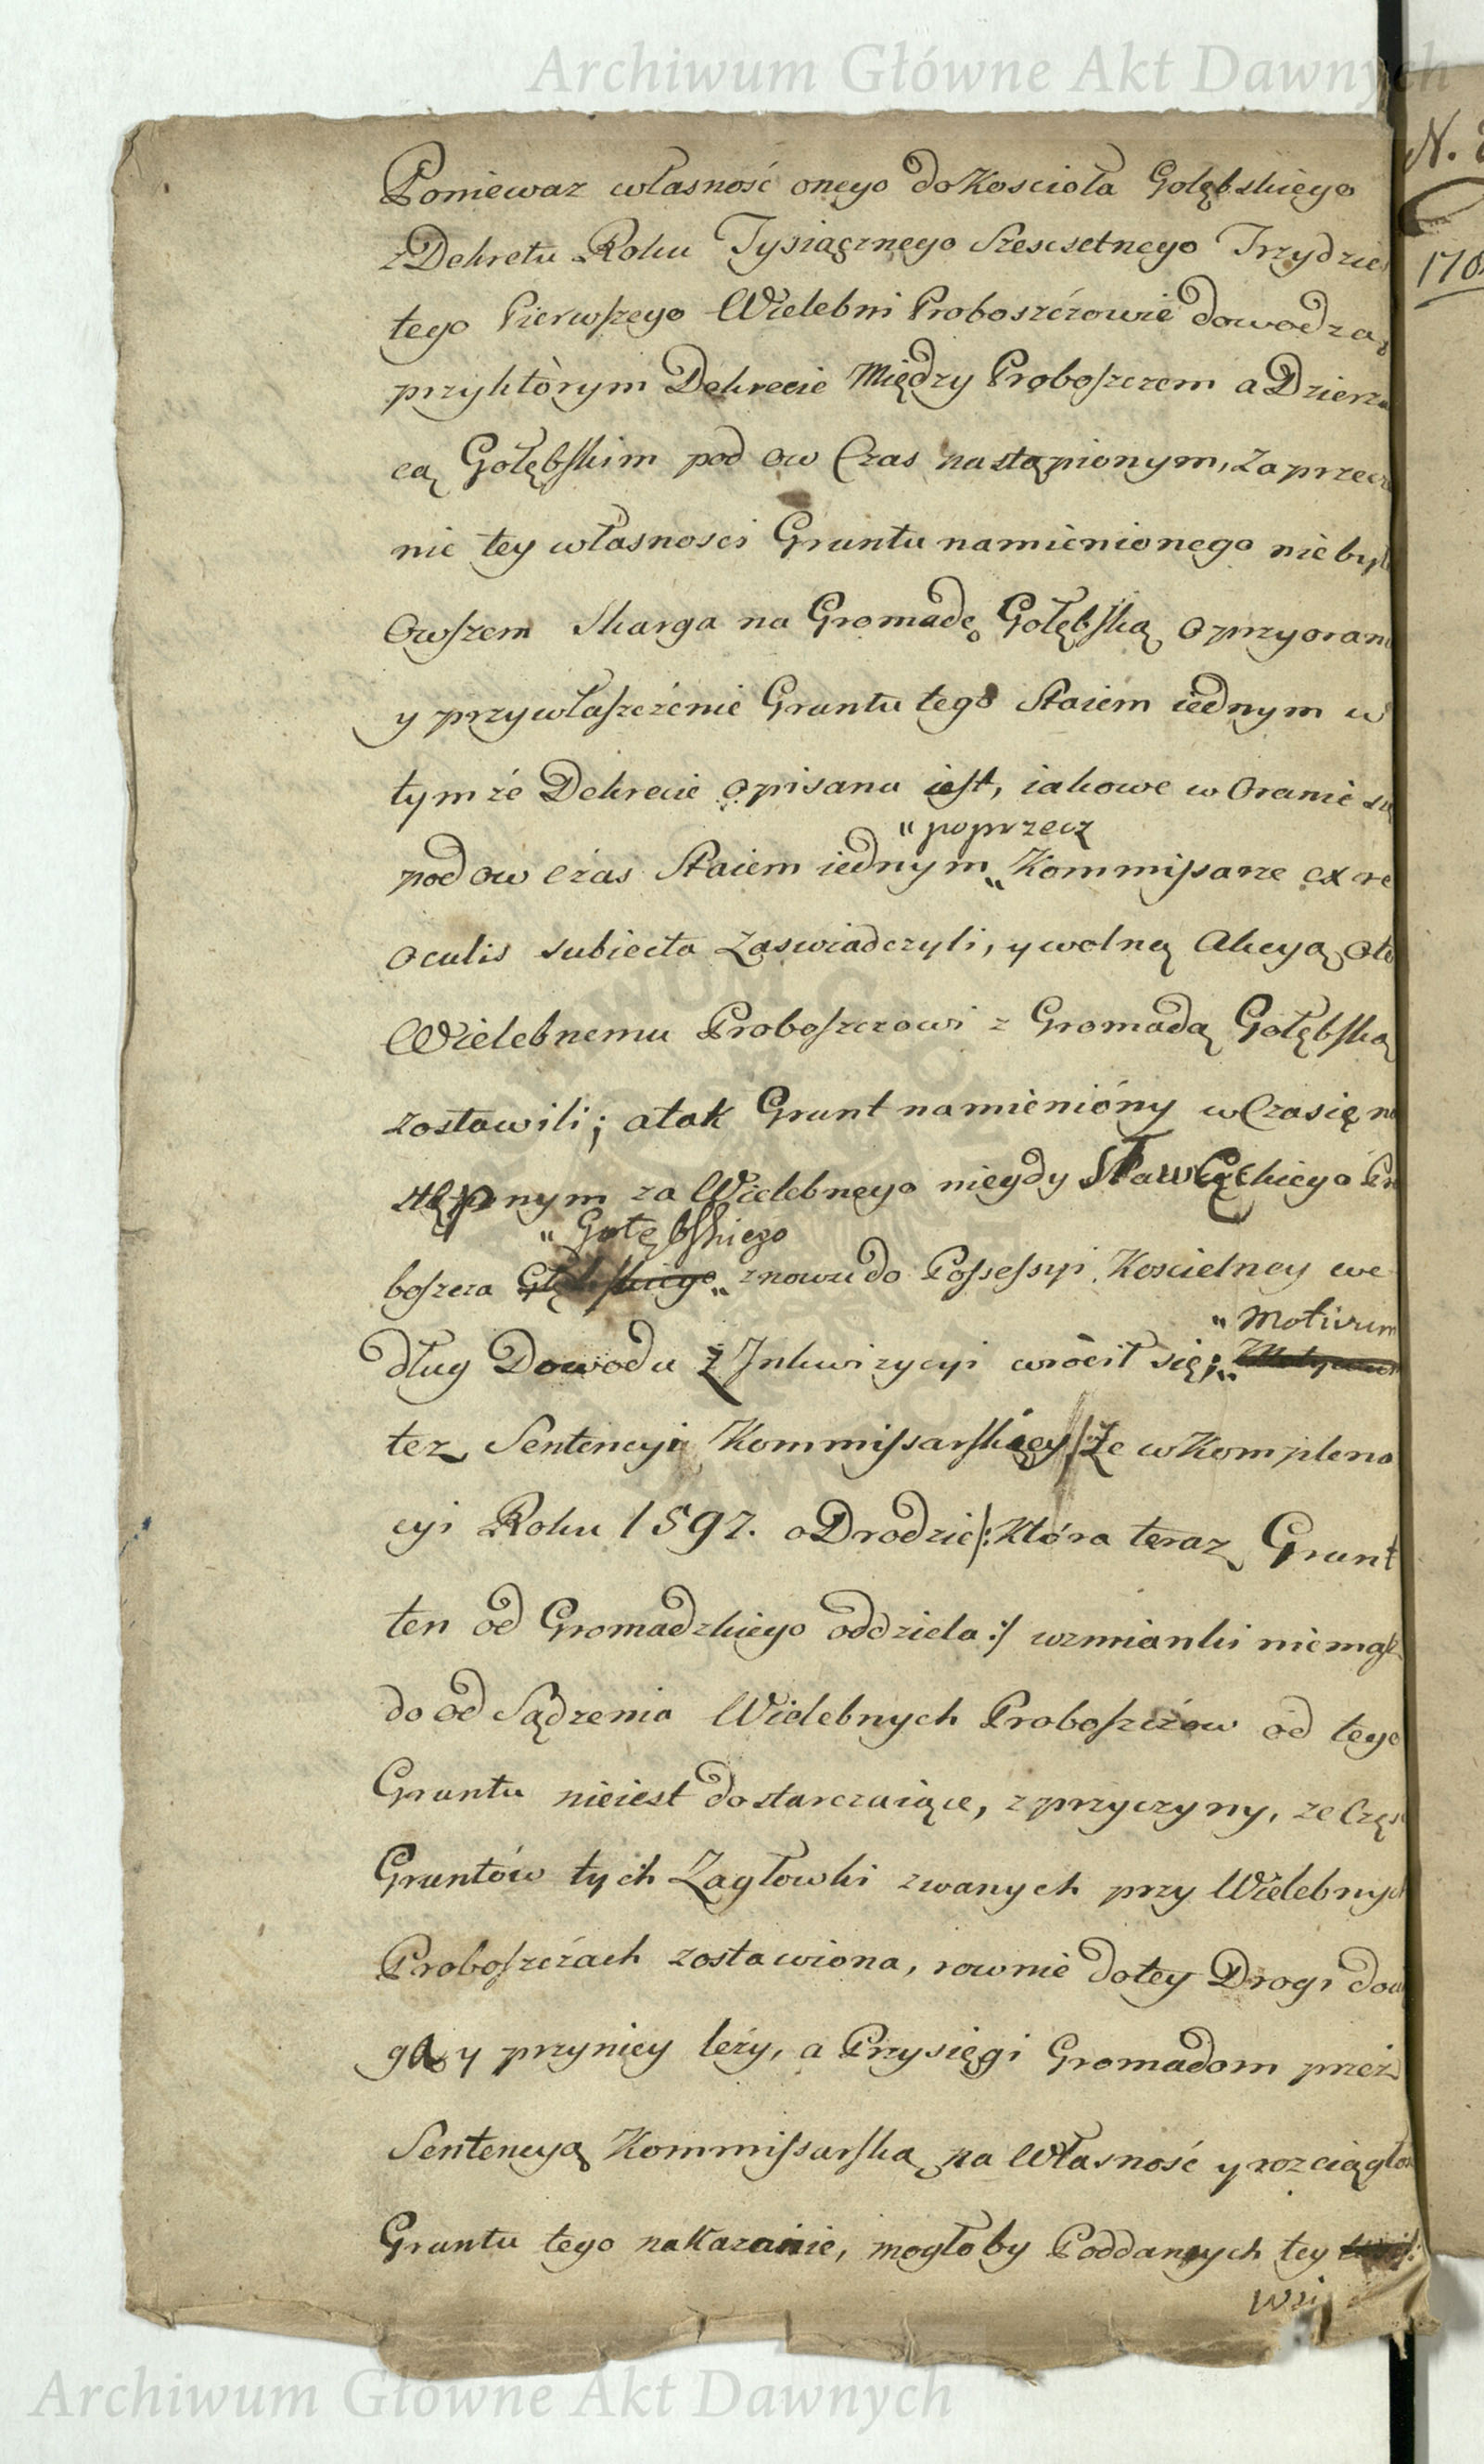 Archiwum Główne Akt Dawnych
Poniewaz własność onego do Koscioła Gołębskiego
z Dekretu Roku Tysiącznego Szescsetnego Trzydzies
tego Pierwszego Wielebni Proboszczowie dowodzą,
przyktòrym Dekrecie Między Proboszczem a Dzierza
cą Gołębskim pod ow Czas nastąpionym, zaprzecze
nie tey własnosci Gruntu namienionego nie było
Owszem Skarga na Gromadę Gołębską o przyoranie
y przywłaszczenie Gruntu tego Staiem iednym w
tymże Dekrecie opisana iest, iakowe w Oranie się
" poprzecz
pod ow czas Staiem iednym „ Kommissarze ex re
oculis subiecta zaswiadczyli, y wolną Akcyą o to
Wielebnemu Proboszczowi z Gromadą Gołębską
zostawili; a tak Grunt namieniony w Czasie na
stępnym za Wielebnego niegdy Sławęckiego Pro
" Gołębskiego
boszcza „ znowu do Possessyi Koscielney we
" Motivum
dług Dowodu z Inkwizycyi wròcił się; „
tez Sentencyi Kommissarskiey /: Ze w Komplena
cyi Roku 1597. o Drodzie /: Która teraz Grunt
ten od Gromadzkiego oddziela :/ wzmianki niemasz
do od Sądzenia Wielebnych Proboszczow od tego
Gruntu nieiest dostarczaiące, z przyczyny, ze Częsc
Gruntów tych Zagłowki zwanych przy Wielebnych
Proboszczach zostawiona, rownie do tey Drogi docią
ga y przyniey leży, a Przysięgi Gromadom przez
Sentencyą Kommissarską na Własność y rozciągłosc
Gruntu tego nakazanie, mogłoby Poddanych tey
Wsi
N.
170
Archiwum Główne Akt Dawnych